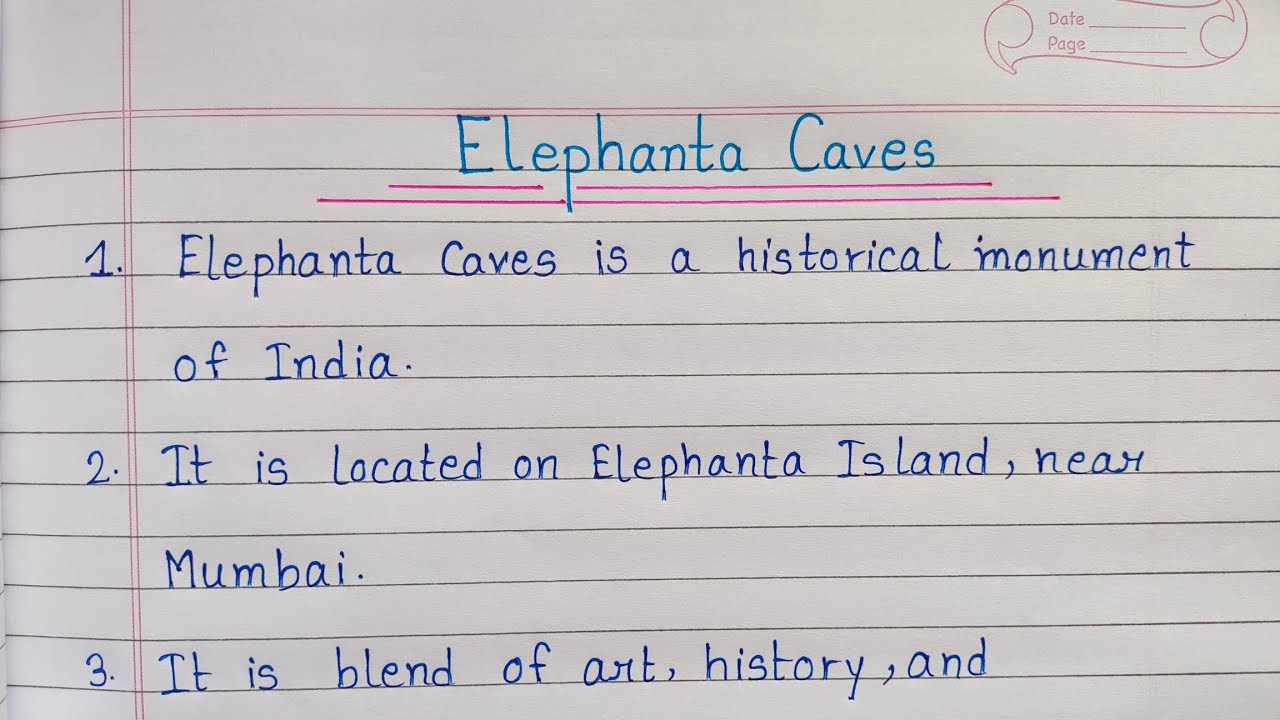 Date
Page
Elephanta Caves
1. Elephanta Caves is a historical monument
of India.
2. It is located on Elephanta Island, near
Mumbai.
3. It is blend of art, history, and